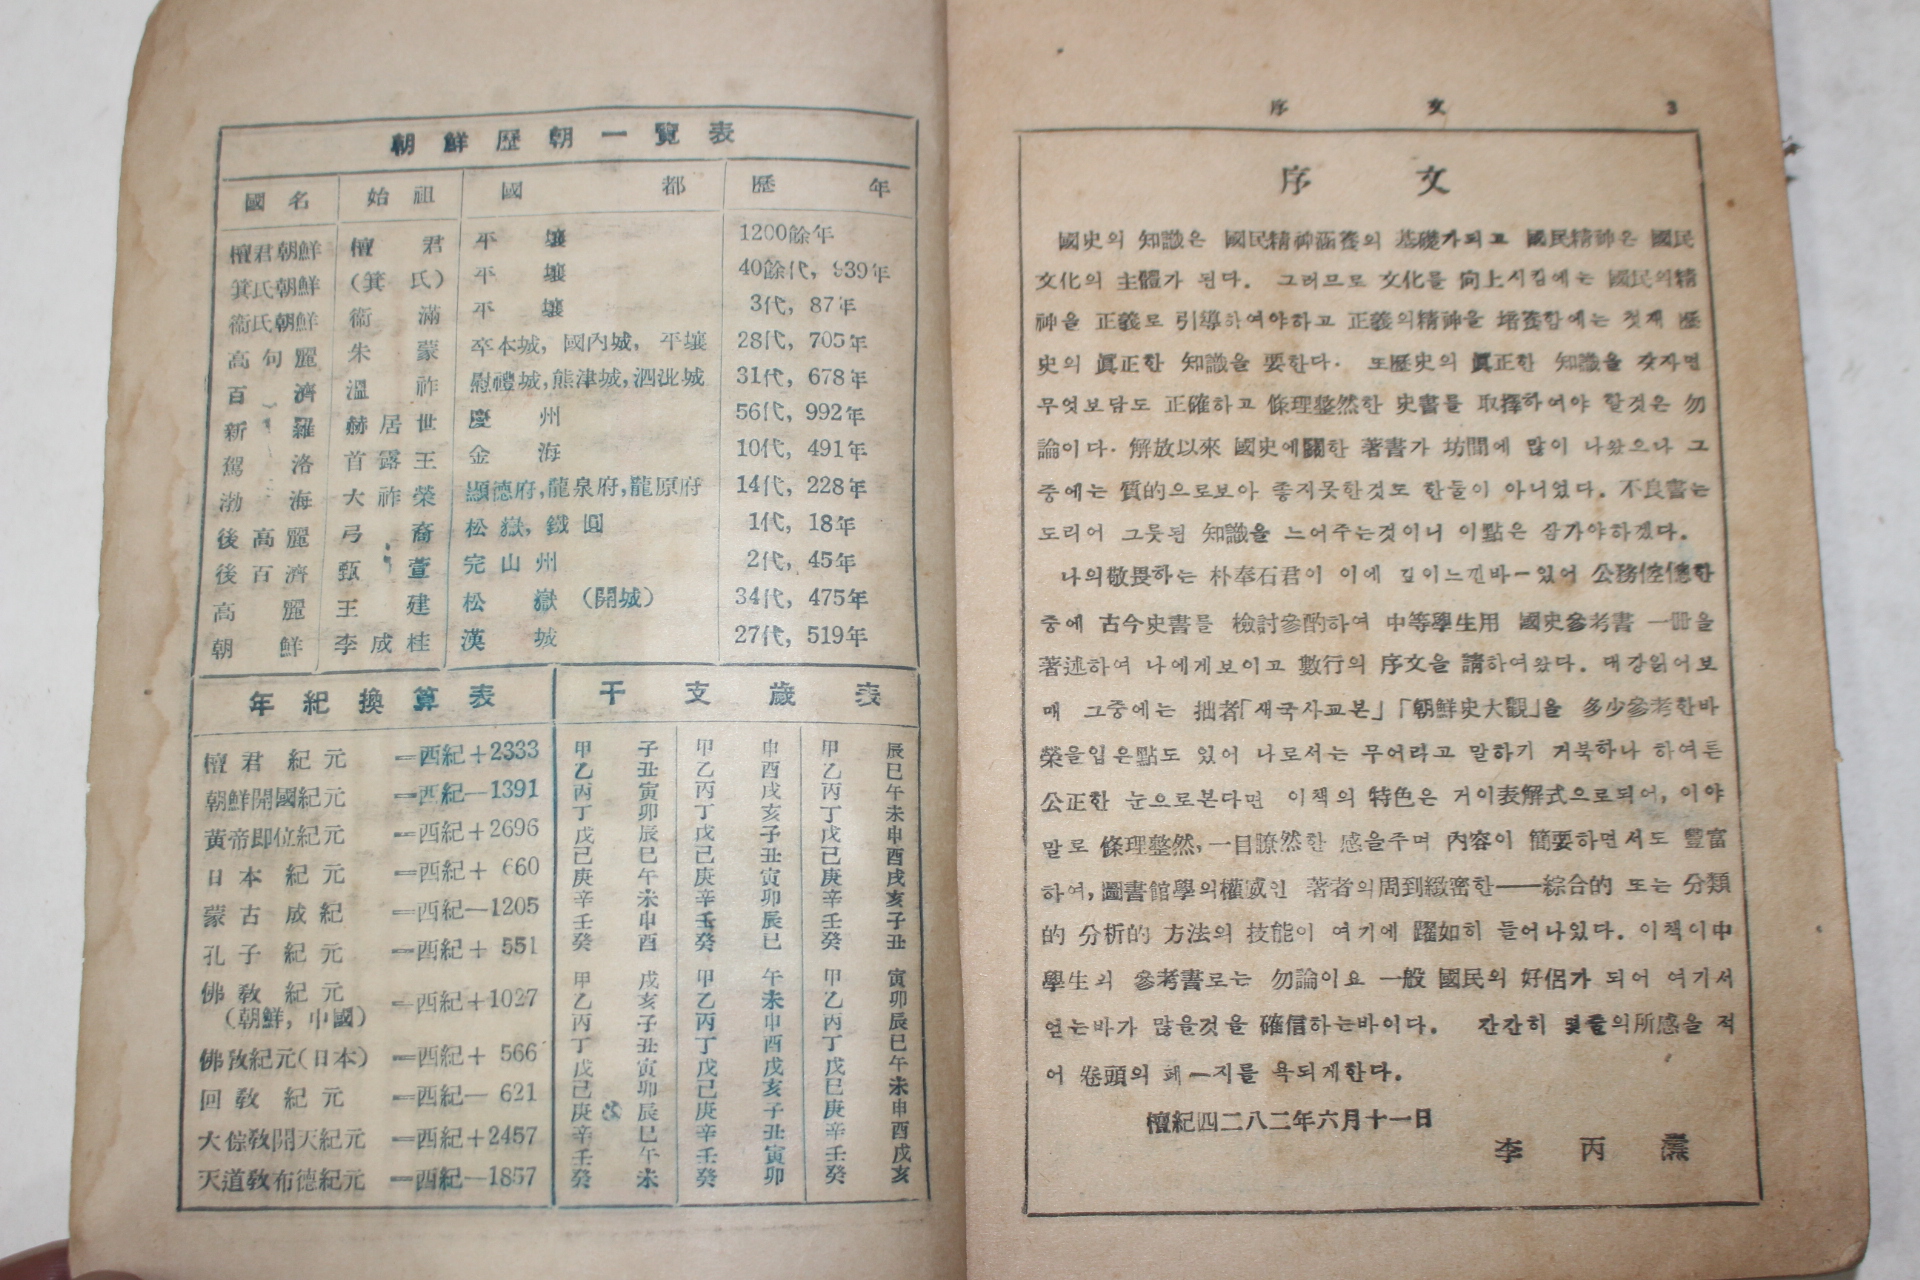 朝鮮歷朝一覽表
國名 始祖 國都 歷年
檀君朝鮮 檀君 平壤 1200餘年
箕氏朝鮮 (箕氏) 平壤 40餘代, 939年
衞氏朝鮮 衞滿 平壤 3代, 87年
高句麗 朱蒙 卒本城, 國內城, 平壤 28代, 705年
百濟 溫祚 慰禮城, 熊津城, 泗沘城 31代, 678年
新羅 赫居世 慶州 56代, 992年
駕洛 首露王 金海 10代, 491年
渤海 大祚榮 顯德府, 龍泉府, 龍原府 14代, 228年
後高麗 弓裔 松嶽, 鐵圓 1代, 18年
後百濟 甄萱 完山州 2代, 45年
高麗 王建 松嶽 (開城) 34代, 475年
朝鮮 李成桂 漢城 27代, 519年
年紀換算表
檀君紀元 =西紀+2333
朝鮮開國紀元 =西紀—1391
黃帝卽位紀元 =西紀+2696
日本紀元 =西紀+ 660
蒙古成紀 =西紀—1205
孔子紀元 =西紀+ 551
佛敎紀元
(朝鮮, 中國) =西紀+1027
佛敎紀元(日本) =西紀+ 566
回敎紀元 =西紀— 621
大倧敎開天紀元 =西紀+2457
天道敎布德紀元 =西紀—1857
干支歲表
甲子 甲申 甲辰
乙丑 乙酉 乙巳
丙寅 丙戌 丙午
丁卯 丁亥 丁未
戊辰 戊子 戊申
己巳 己丑 己酉
庚午 庚寅 庚戌
辛未 辛卯 辛亥
壬申 壬辰 壬子
癸酉 癸巳 癸丑
甲戌 甲午 甲寅
乙亥 乙未 乙卯
丙子 丙申 丙辰
丁丑 丁酉 丁巳
戊寅 戊戌 戊午
己卯 己亥 己未
庚辰 庚子 庚申
辛巳 辛丑 辛酉
壬午 壬寅 壬戌
癸未 癸卯 癸亥
序文 3
序文
國史의 知識은 國民精神涵養의 基礎가되고 國民精神은 國民
文化의 主體가 된다. 그러므로 文化를 向上시킴에는 國民의精
神을 正義로 引導하여야하고 正義의精神을 培養함에는 첫재 歷
史의 眞正한 知識을 要한다. 또歷史의 眞正한 知識을 갖자면
무엇보담도 正確하고 條理整然한 史書를 取擇하여야 할것은 勿
論이다. 解放以來 國史에關한 著書가 坊間에 많이 나왔으나 그
중에는 質的으로보아 좋지못한것도 한둘이 아니었다. 不良書는
도리어 그릇된 知識을 느어주는것이니 이點은 삼가야하겠다.
나의敬畏하는 朴奉石君이 이에 깊이느낀바—있어 公務倥傯한
중에 古今史書를 檢討參酌하여 中等學生用 國史參考書 一冊을
著述하여 나에게보이고 數行의 序文을 請하여왔다. 대강읽어보
매 그중에는 拙者「새국사교본」「朝鮮史大觀」을 多少參考한바
榮을입은點도 있어 나로서는 무어라고 말하기 거북하나 하여튼
公正한 눈으로본다면 이책의 特色은 거이表解式으로되어, 이야
말로 條理整然, 一目瞭然한 感을주며 內容이 簡要하면서도 豐富
하여, 圖書館學의權威인 著者의周到緻密한——綜合的 또는 分類
的 分析的 方法의 技能이 여기에 躍如히 들어나있다. 이책이中
學生의 參考書로는 勿論이요 一般 國民의 好侶가 되어 여기서
얻는바가 많을것을 確信하는바이다. 간간히 몇줄의所感을 적
어 卷頭의 페—지를 욕되게한다.
檀紀四二八二年六月十一日
李丙燾